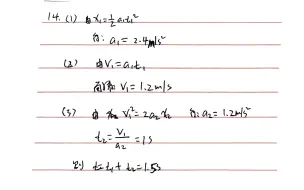 14. (1) 由x₁=½a₁t₁²
得: a₁=2.4m/s²
(2) 由V₁=a₁t₁
V₁=1.2m/s
(3) 由 V₁²=2a₂x₂ 得: a₂=1.2m/s²
t₂=V₁/a₂=1s
则 t=t₁+t₂=1.5s